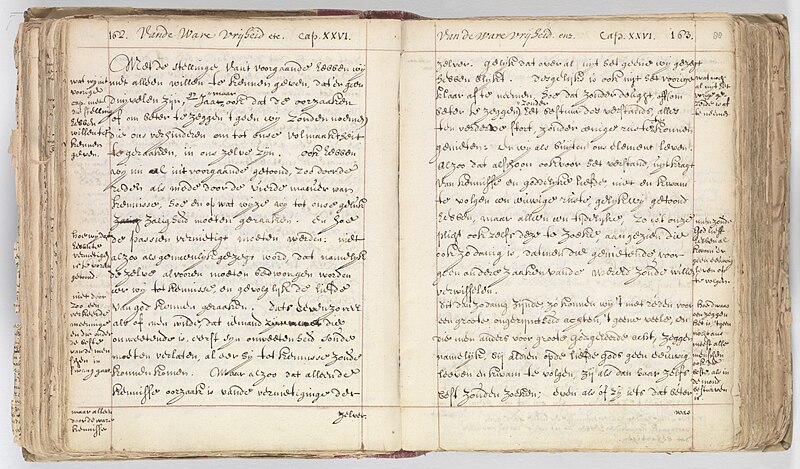 162. Vande Ware Vrijheid etc. Cap. XXVI.
Met de stellinge van't voorgaande hebben wij
niet alleen willen te kennen geven, dat er geen
duyvelen zijn, maar ook dat de oorzaaken
of om beter te zeggen 't geen wij Zonden noemen
die ons verhinderen om tot onse volmaaktheit
te geraaken, in ons zelve zijn. ook hebben
wij nu al in't voorgaande getoond, zoo door de
reden als mede door de vierde manier van
kennisse, hoe en op wat wijze wij tot onse geluk
Zaligheid moeten geraaken. en hoe
de passien vernietigt moeten werden: niet
alzoo als gemeenlijk gezegt word, dat namelijk
de zelve alvooren moeten bedwongen worden
eer wij tot kennisse, en gevolglijk de liefde
van god konnen geraaken. dats even zoo veel
als of men wilde, dat iemand die
onweetende is, eerst sijn onweetenheid soude
moeten verlaten, al eer hij tot kennisse zoude
konnen komen. Maar alzoo dat alleen de
kennisse oorzaak is vande vernietiginge der
zelver
wat wij uit
voorige
cap. met
de stelling
hebben
willen te
kennen
geven.
Hoe wij de
te vernietigen
getoond.
niet door
zoo een
verkeerde
maar alleen
door de ware
kennisse
Van de Ware Vrijheid. enz. Cap. XXVI. 163. 80
zelver. gelijk dat over al uijt het geene wij gezegt
hebben blijkt. Diergelijks is ook uijt het voorige
klaar af te neemen, hoe dat zonder deugt, of (om
beter te zeggen) zonder het bestuur des verstands, alles
ten verderve stort, zonder eenige ruste te konnen
genieten: en wij als buijten ons element leven.
Alzoo dat alschoon ook voor het verstand, uijt kragt
van kennisse en goddelijke liefde niet en kwam
te volgen een eeuwige ruste, gelijk wij getoond
hebben, maar alleen een tijdelijke, zo is't onze
pligt ook zelfs deze te zoeken, aangezien die
ook zodanig is, dat men die genietende voor
geen andere zaaken vande wereld zoude willen
verwisselen.
Dit dan zodanig zijnde, zo konnen wij 't met reden voor
een groote ongerijmtheid achten, 't geene veele, en
die men anders voor groote Godgeleerde acht, zeggen
namelijk, bij aldien op de liefde Gods geen eeuwig
leeven en kwam te volgen, zij als dan haar zelfs
best zouden zoeken: even als of zij iets dat beter
was
wat nog
al uijt het
voorige
af
te neemen